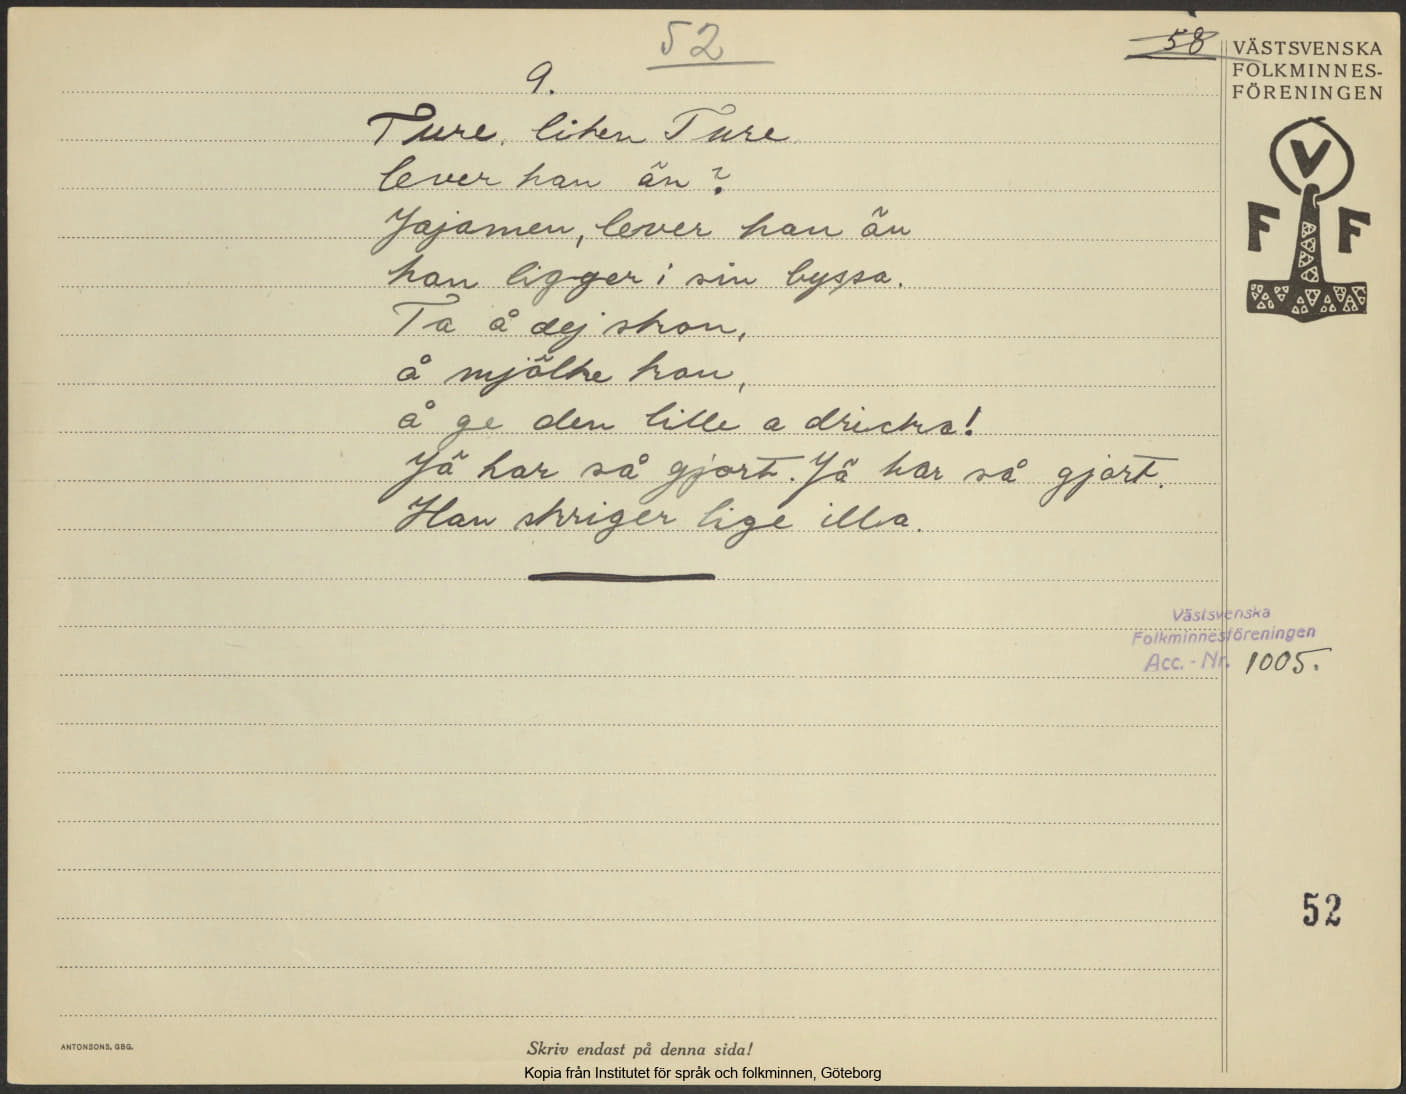 52
58
VÄSTSVENSKA
FOLKMINNES-
FÖRENINGEN
V
F F
9.
Ture, liten Ture
lever han än?
Jajamen, lever han än
han ligger i sin byssa.
Ta å dej skon,
å mjölke kon,
å ge den lille a dricka!
Jä har så gjort. Jä har så gjort.
Han skriger lige illa.
Västsvenska
Folkminnesföreningen
Acc.-Nr. 1005.
52
ANTONSONS, GBG.
Skriv endast på denna sida!
Kopia från Institutet för språk och folkminnen, Göteborg